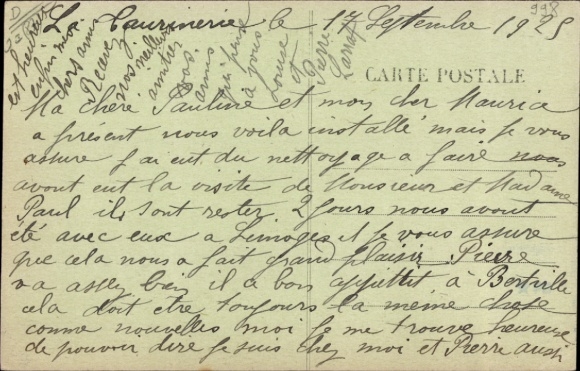 La Taurinerie le 17 Septembre 1925
CARTE POSTALE
Ma chère Pauline et mon cher Maurice
a present nous voila installé mais je vous
assure j'ai eut du nettoyage a faire nous
avont eut la visite de Monsieur et Madame
Paul ils sont rester 2 jours nous avont
été avec eux a Limoges et je vous assure
que cela nous a fait grand plaisir Pierre
va assez bien il a bon appittit, à
cela doit être toujours la meme chose
comme nouvelles moi je me trouve heureuse
de pouvoir dire je suis chez moi et Pierre aussi
est heureux
enfin moi
chers amis
Recevez
nos meilleurs
amitiés
vos
amis
qui pense
à vous
et
Pierre